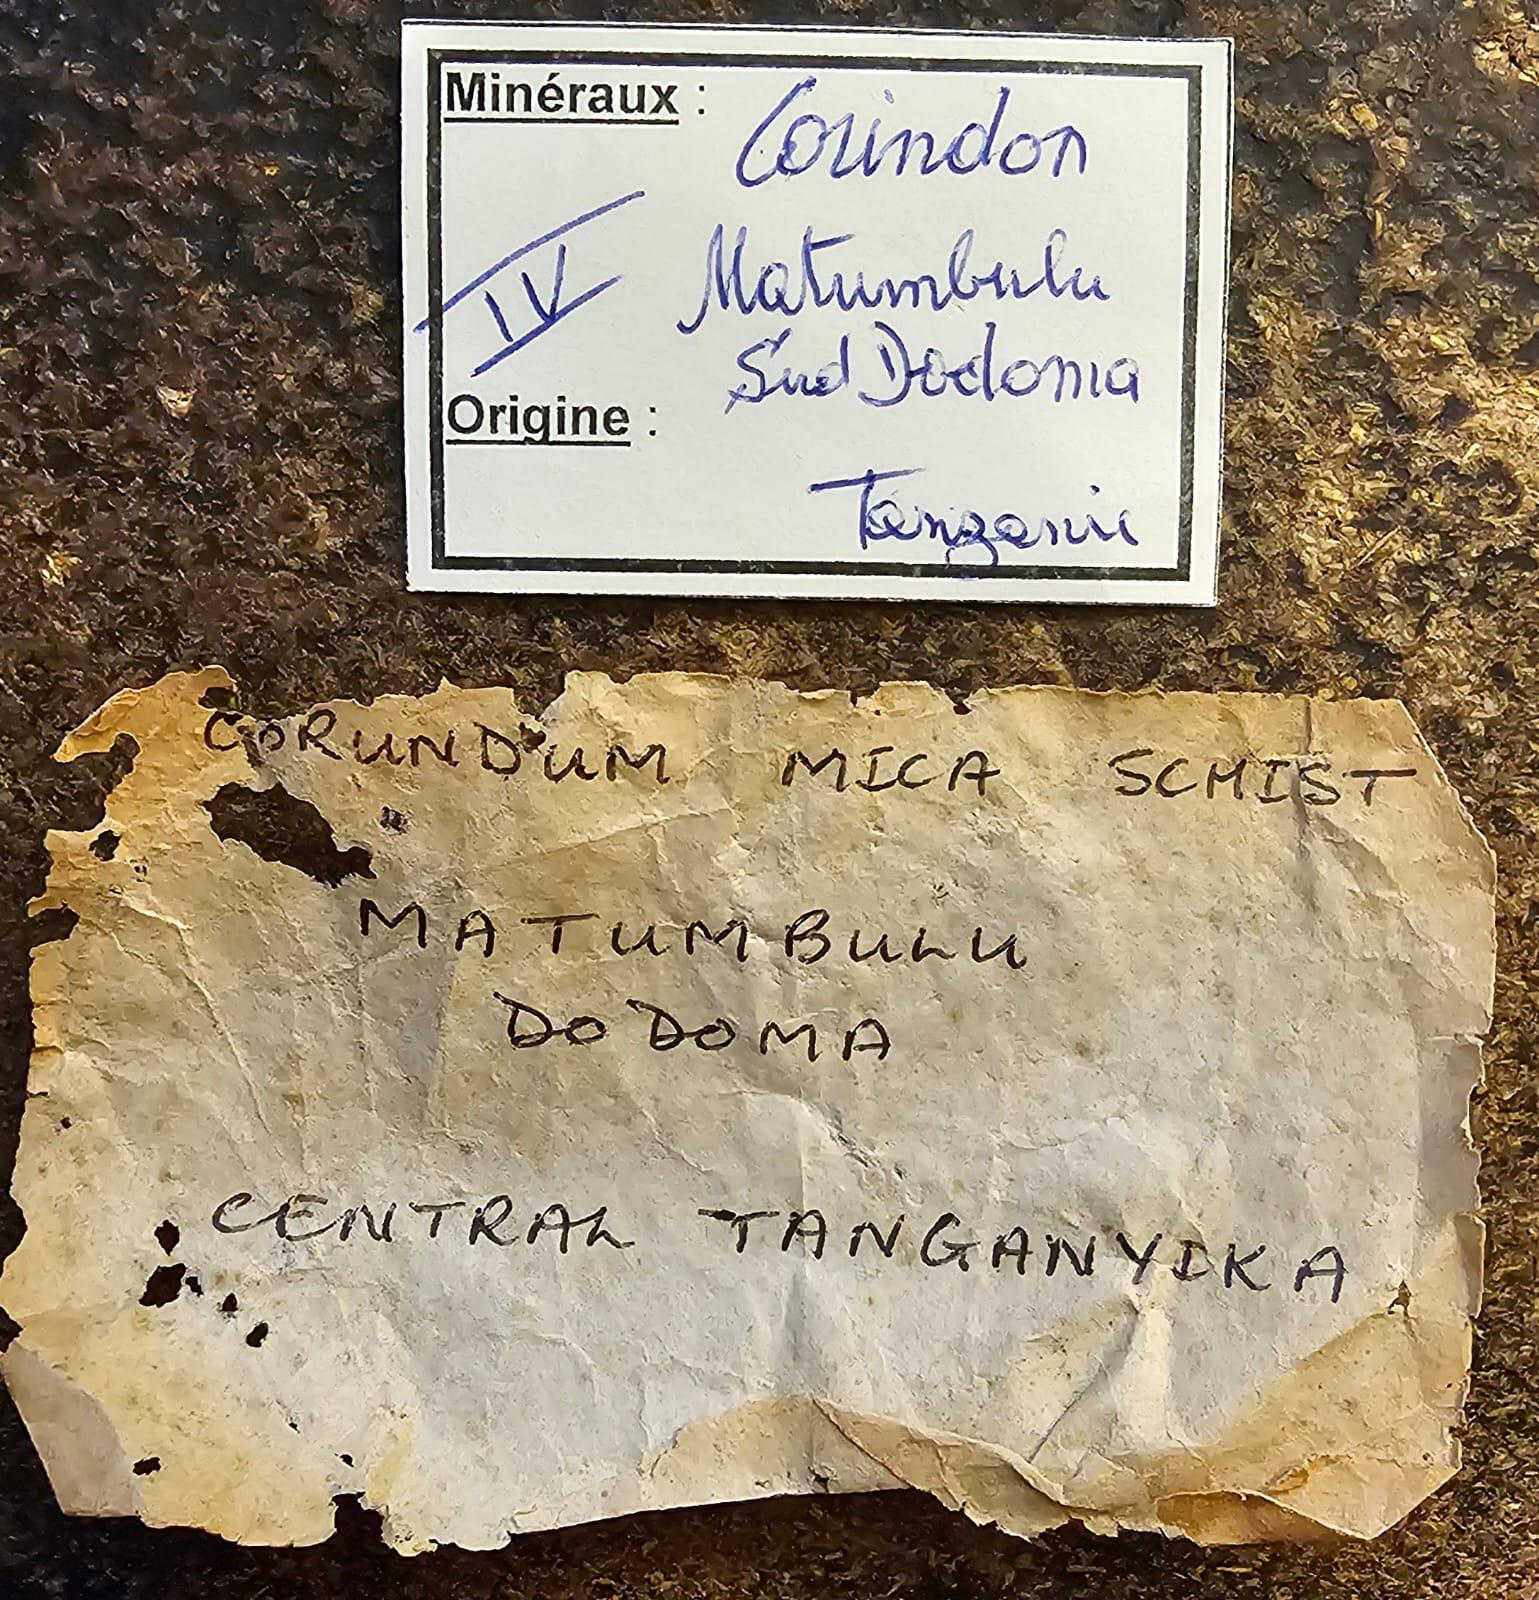 Minéraux : Corindon
IV
Matumbulu
Sud Dodoma
Origine :
Tanzanie
CORUNDUM MICA SCHIST
MATUMBULU
DODOMA
CENTRAL TANGANYIKA